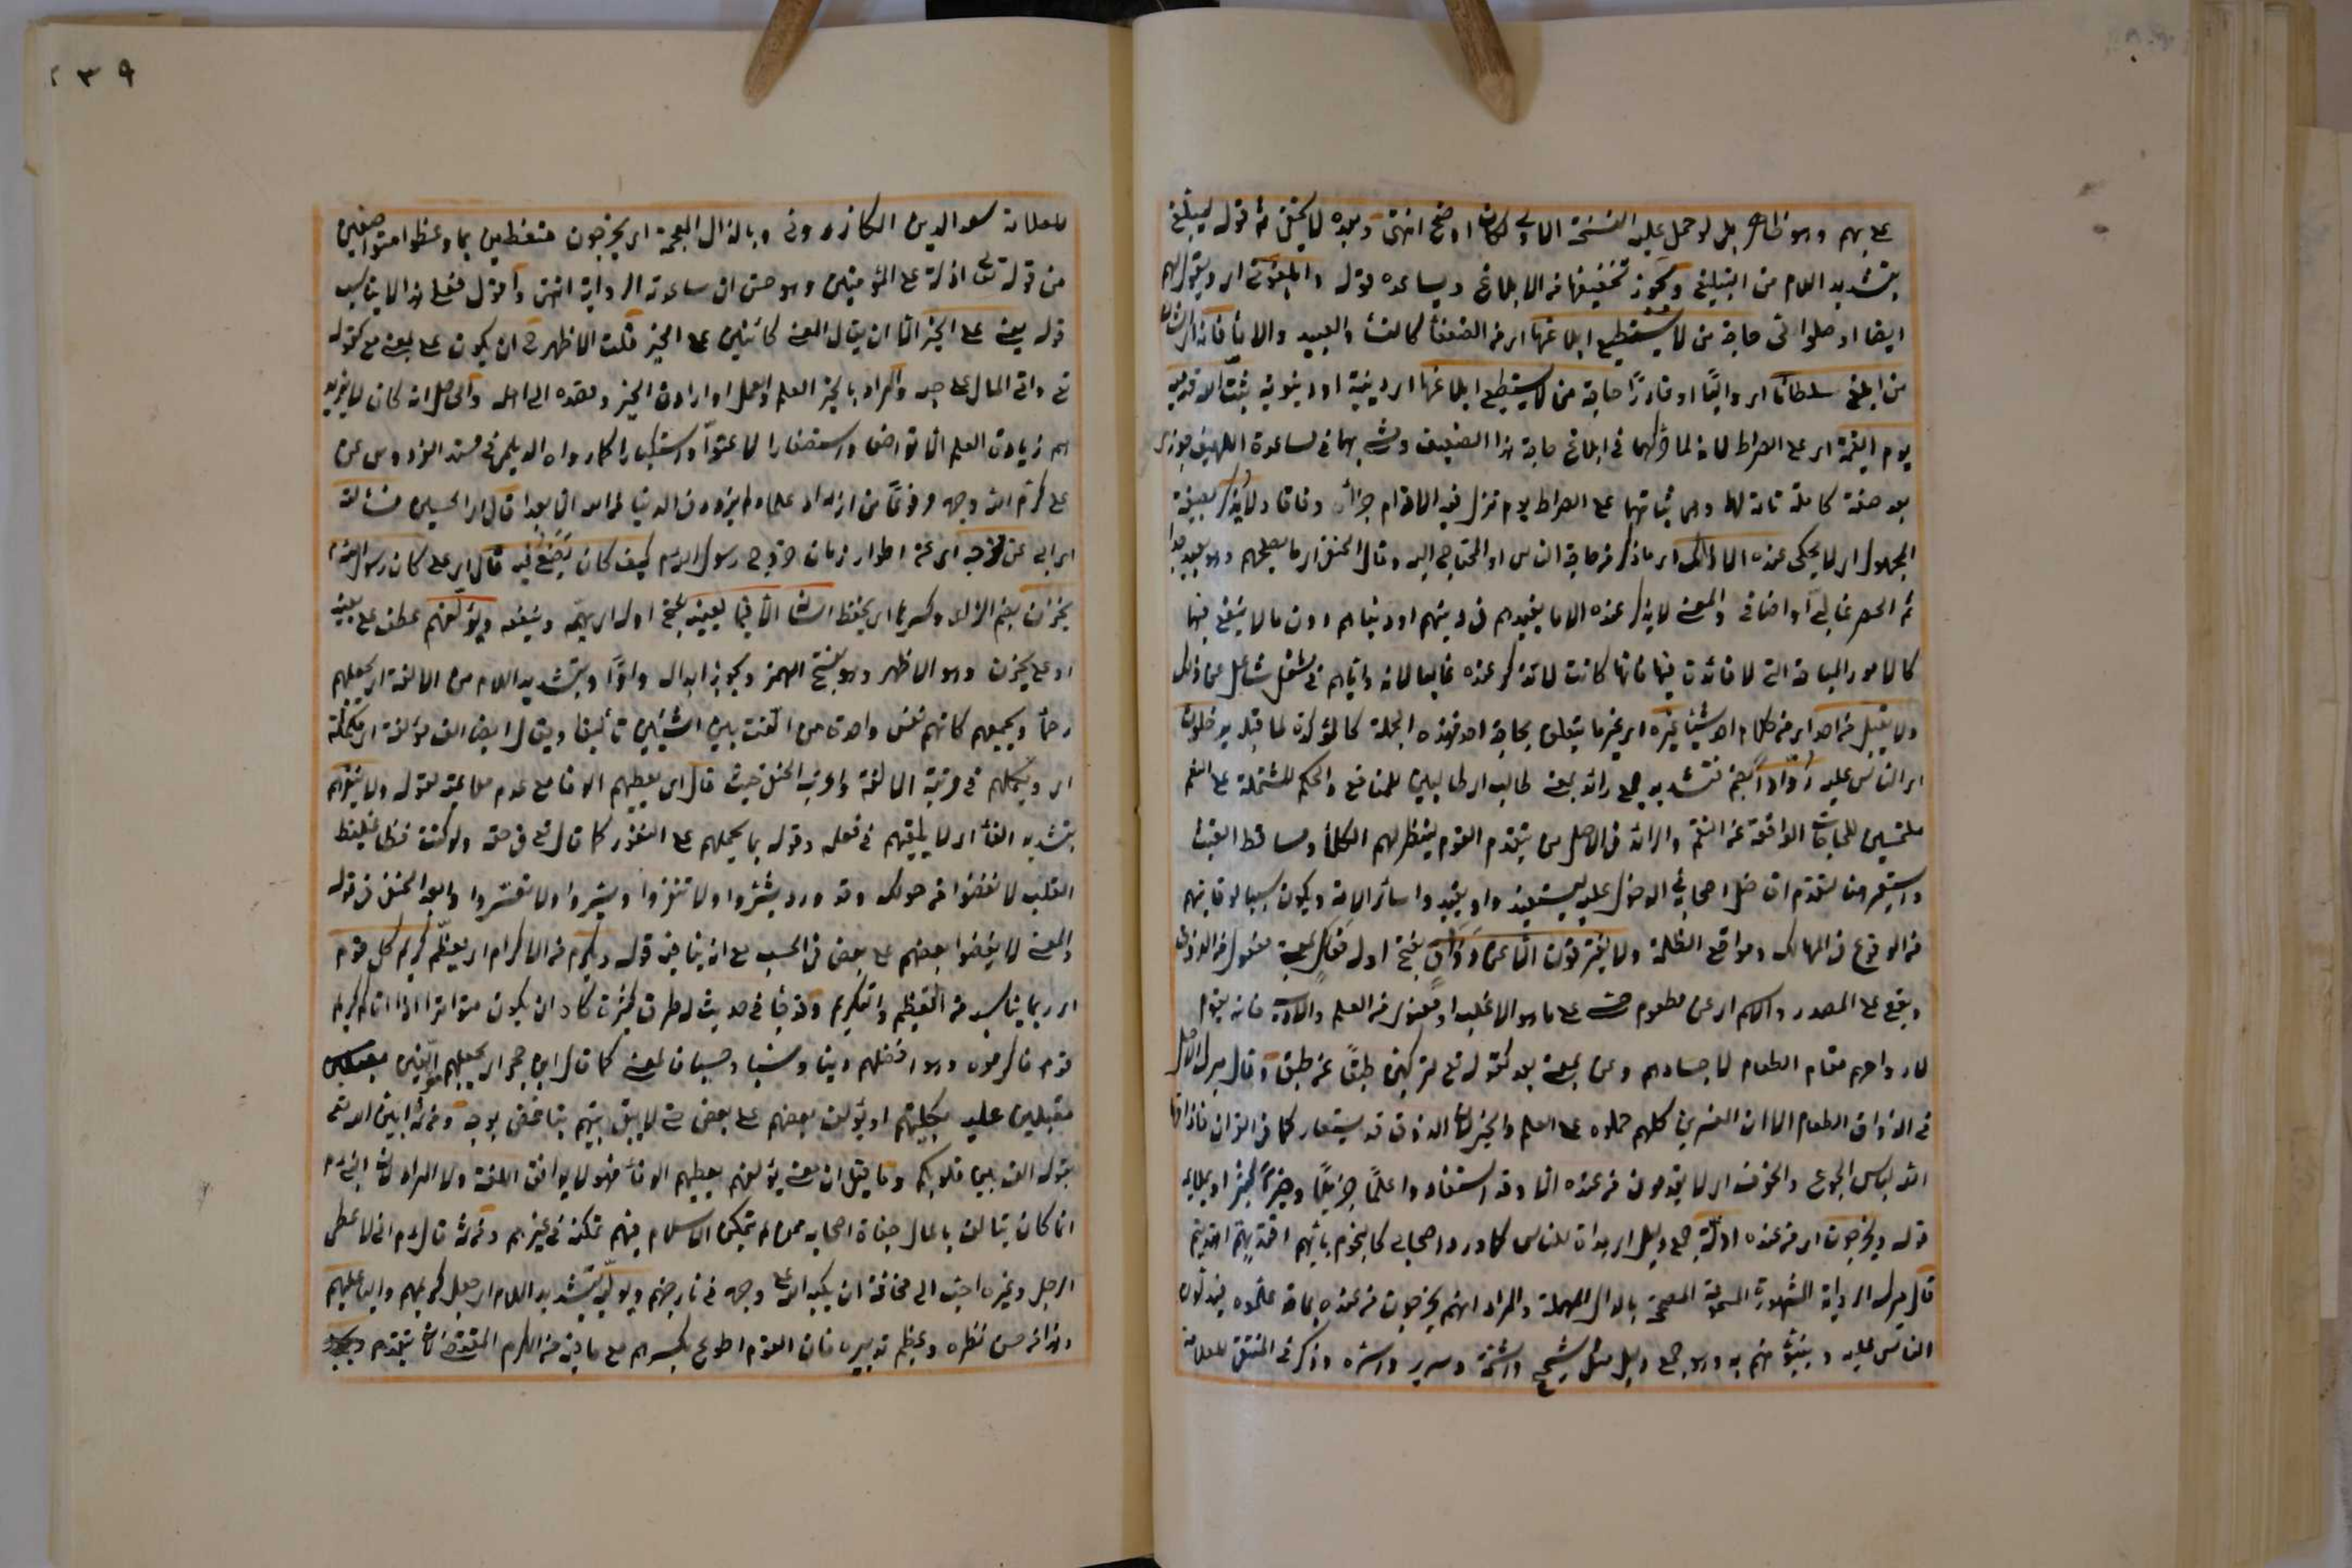 عليهم وهو ظاهر بل لو حمل عليه النسخة الاولى لكان اوضح انتهى وبعده لا يخفى ثم قوله ليبلغ
بتشديد اللام من التبليغ ويجوز تخفيفها من الابلاغ ويساعده قوله وابلغوني اي ويقول لهم
ايضا اوصلوا الي حاجة من لا يستطيع ابلاغها اي من الضعفاء كالنساء والعبيد والاماء فانه اي الشان
من ابلغ سلطانا اي واليا او قادرًا حاجة من لا يستطيع ابلاغها اي دينية او دنيوية ثبت الله قدميه
يوم القيمة اي على الصراط لانه لما حركهما في ابلاغ حاجة هذا الضعيف ومشى بهما في مساعدة اللهيف جوزي
بعد صفة كاملة تامة لها وهي ثباتهما على الصراط يوم تزل فيه الاقدام جزاء وفاقا ولا يذكر بصيغة
المجهول اي لا يحكى عنده الا ذلك اي ما ذكر من حاجة الناس او المحتاج اليه وقال الحنفي اي ما يصلحهم وهو بعيد جدا
ثم الحصر غالبي او اضافي والمعنى لا يذكر عنده الا ما يفيدهم في دينهم او دنياهم دون ما لا ينفع فيها
كالامور المباحة التي لا فائدة فيها فانها كانت لا تذكر عنده غالبا لانه واياهم في شغل شاغل عن ذلك
ولا يقبل من احد اي من كلام احد شيئا غيره اي غير ما يتعلق بحاجة احد فهذه الجملة كالمؤكدة لما قبله يدخلون
اي الناس عليه روادا بضم فتشديد جمع رائد بمعنى طالب اي طالبين للمنافع والحكم المشتملة على النعم
ملتمسين للحاجات الواقعة عن النقم والرائد في الاصل من يتقدم القوم لينظر لهم الكلأ ومساقط الغيث
واستعير هنا لتقدم افاضل اصحابه في الدخول عليه ليستفيدوا ويفيدوا سائر الامة ويكون سببا لوقايتهم
من الوقوع في المهالك ومواقع الظلمة ولا يفترقون الا عن ذواق بفتح اوله فعال بمعنى مفعول من الذوق
ويقع على المصدر والاسم اي عن مطعوم حسي على ما هو الاغلب او معنوي من العلم والادب فانه يقوم
لارواحهم مقام الطعام لاجسادهم وعن بمعنى بعد كقوله تعالى لتركبن طبقا عن طبق وقال ميرك الاصل
في الذواق الطعام الا ان المفسرين كلهم حملوه على العلم والخير لان الذوق قد يستعار كما في القران فاذاقها
الله لباس الجوع والخوف اي لا يقومون من عنده الا وقد استفادوا علما جزيلا وخيرا كثيرا ويلايم
قوله ويخرجون اي من عنده ادلة جمع دليل اي هداة للناس كما ورد اصحابي كالنجوم بايهم اقتديتم اهتديتم
قال ميرك الرواية المشهورة المسموعة المصححة بالدال المهملة والمراد انهم يخرجون من عنده بما قد علموه فيدلون
الناس عليه وينبئونهم به وهو جمع دليل مثل شحيح واشحة وسرير واسرة وذكر في المنتقى للعلامة
للعلامة سعد الدين الكازروني وبالذال المعجمة اي يخرجون متعظين بما وعظوا متواضعين
من قوله تعالى اذلة على المؤمنين وهو حسن ان ساعدته الرواية انتهى واقول فعلى هذا لا يناسب
قوله يعني على الخير الا ان يقال المعنى كائنين على الخير قلت الاظهر ان يكون على بمعنى مع كقوله
تعالى واتى المال على حبه والمراد بالخير العلم والعمل او ارادة الخير وقصده الى اهله والحاصل انه كان لا يزيد
لهم زيادة العلم الا تواضعا واستصغارا لا عتوا واستكبارا كما رواه الديلمي في مسند الفردوس عن
علي كرم الله وجهه مرفوعًا من ازداد علما ولم يزدد في الدنيا زهدا لم يزدد من الله الا بعدا قال اي الحسين فسألته
اي ابي عن مخرجه اي عن اطوار زمان خروج رسول الله كيف كان يصنع فيه قال اي علي كان رسول الله
يخزن بضم الزاي وكسرها اي يحفظ لسانه الا فيما يعنيه بفتح اوله اي يهمه وينفعه ويؤلفهم عطف على يعنيه
او على يخزن وهو الاظهر وهو بفتح الهمز ويجوز ابداله واوا وبتشديد اللام من الالفة اي يجعلهم
رحماء ويجمعهم كانهم نفس واحدة من الفت بين الشيئين تأليفا ويقال ايضا الف مؤلفة اي مكملة
اي ويكملهم في مرتبة الالفة واغرب الحنفي حيث قال اي يعطيهم الوفا مع عدم ملاءمته لقوله ولا ينفرهم
بتشديد الفاء اي لا يلقيهم في فعله وقوله بما يحملهم على النفور كما قال تعالى في حقه ولو كنت فظا غليظ
القلب لانفضوا من حولك وقد ورد بشروا ولا تنفروا ويسروا ولا تعسروا وابعد الحنفي في قوله
والمعنى لا يفضلوا بعضهم على بعض في الحسب مع انه ينافيه قوله ويكرم من الاكرام اي يعظم كريم كل قوم
اي بما يناسبه من التعظيم والتكريم وقد جاء في حديث له طرق كثيرة كاد ان يكون متواترا اذا اتاكم كريم
قوم فاكرموه وهو افضلهم دينا ونسبا وحسبا والمعنى كما قال ابن حجر اي يجعلهم الفين
مقبلين عليه بكليتهم او يؤلف بعضهم على بعض حتى لا يبقى بينهم تباغض بوجه ومن ثم امتن الله تعالى
بقوله الف بين قلوبكم وما يقال ان معنى يؤلفهم يعطيهم الوفا فهو لا يوافق اللغة ولا المراد لانه
انما كان يتالف بالمال جفاة اصحابه ممن لم يتمكن الاسلام فيهم تمكنه في غيرهم ومن ثم قال اني لاعطي
الرجل وغيره احب الي مخافة ان يكبه الله على وجهه في نار جهنم ويوليه بتشديد اللام اي يجعل كريمهم واليا عليهم
وهذا من حسن نظره وعظيم تدبيره فان القوم اطوع لكبيرهم مع ما فيه من الكرم المقتضي لان يتقدم
٢٣٩